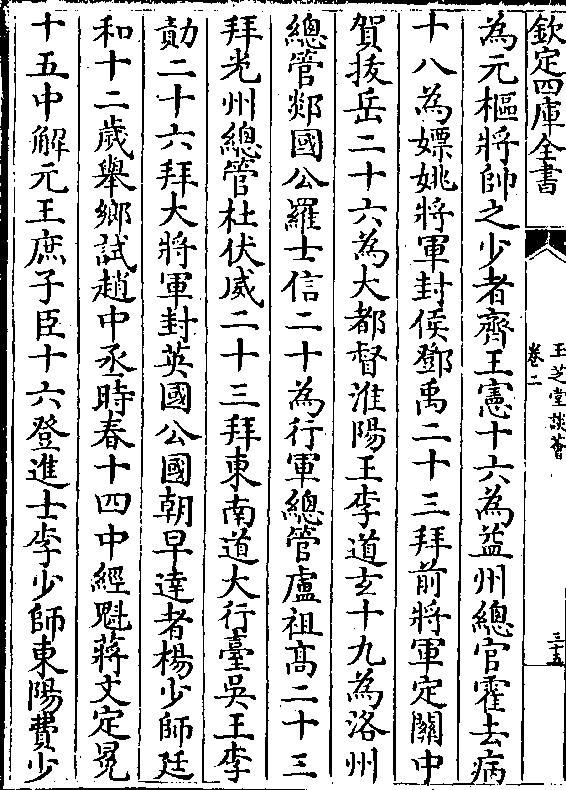 欽定四庫全書
玉芝堂談薈
卷二
三十五
為元樞將帥之少者齊王憲十六為益州總官霍去病
十八為嫖姚將軍封侯鄧禹二十三拜前將軍定關中
賀拔岳二十六為大都督淮陽王李道玄十九為洛州
總管郯國公羅士信二十為行軍總管盧祖髙二十三
拜光州總管杜伏威二十三拜東南道大行臺吳王李
勣二十六拜大將軍封英國公國朝早達者楊少師廷
和十二歲舉鄉試趙中丞時春十四中經魁蔣文定冕
十五中解元王庶子臣十六登進士李少師東陽費少